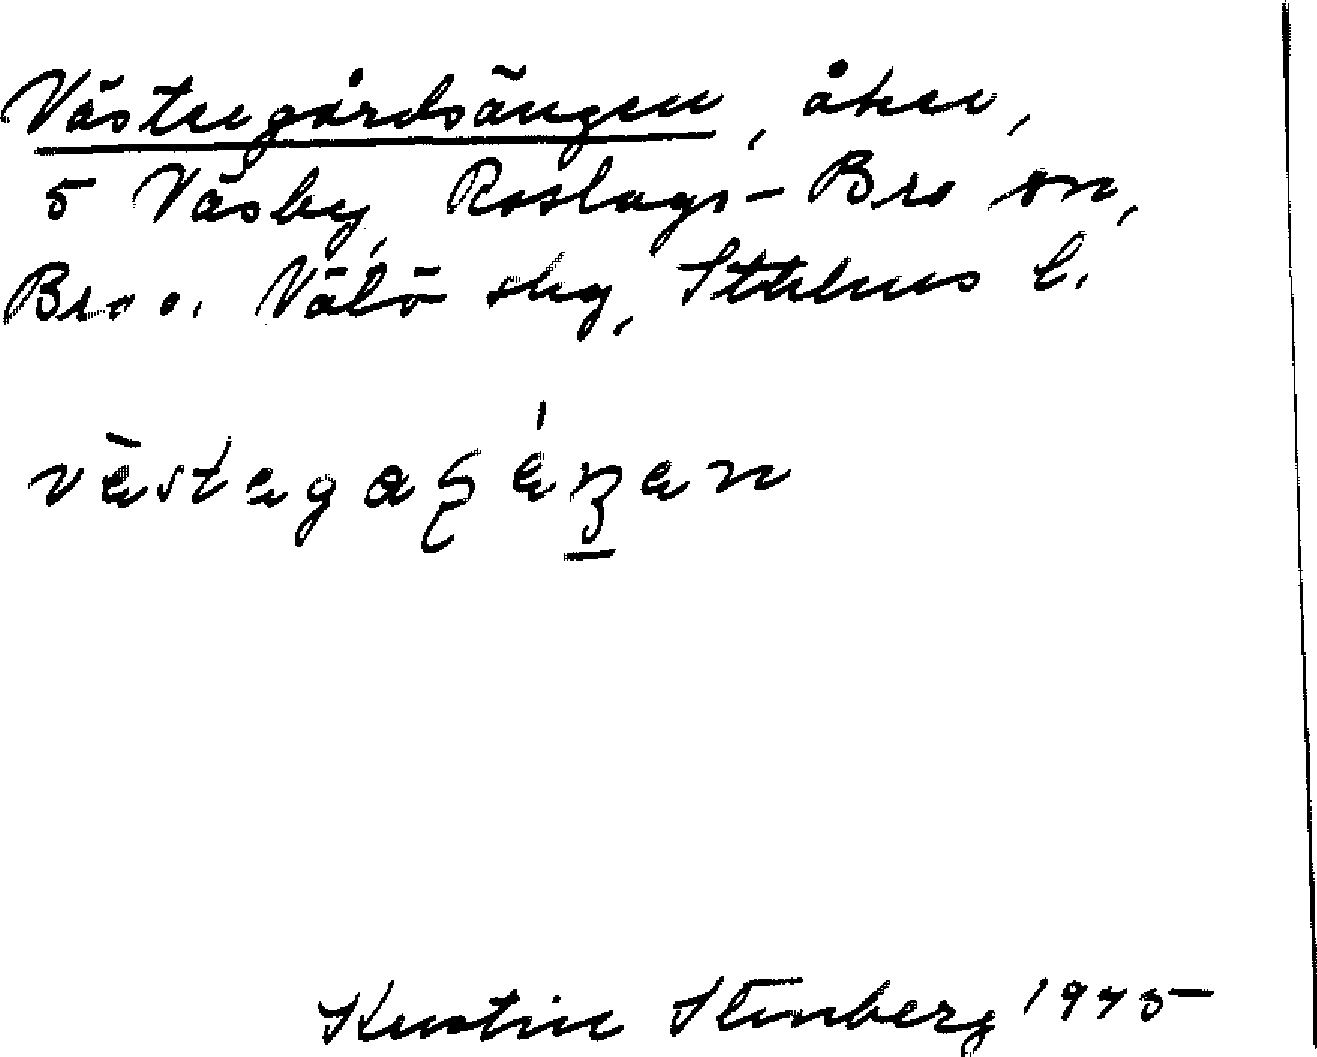 Västergårdsängen, åker,
5 Väsby, Roslags-Bro sn,
Bro o. Vätö skg, Sthlms l.
Kerstin Stenberg 1945